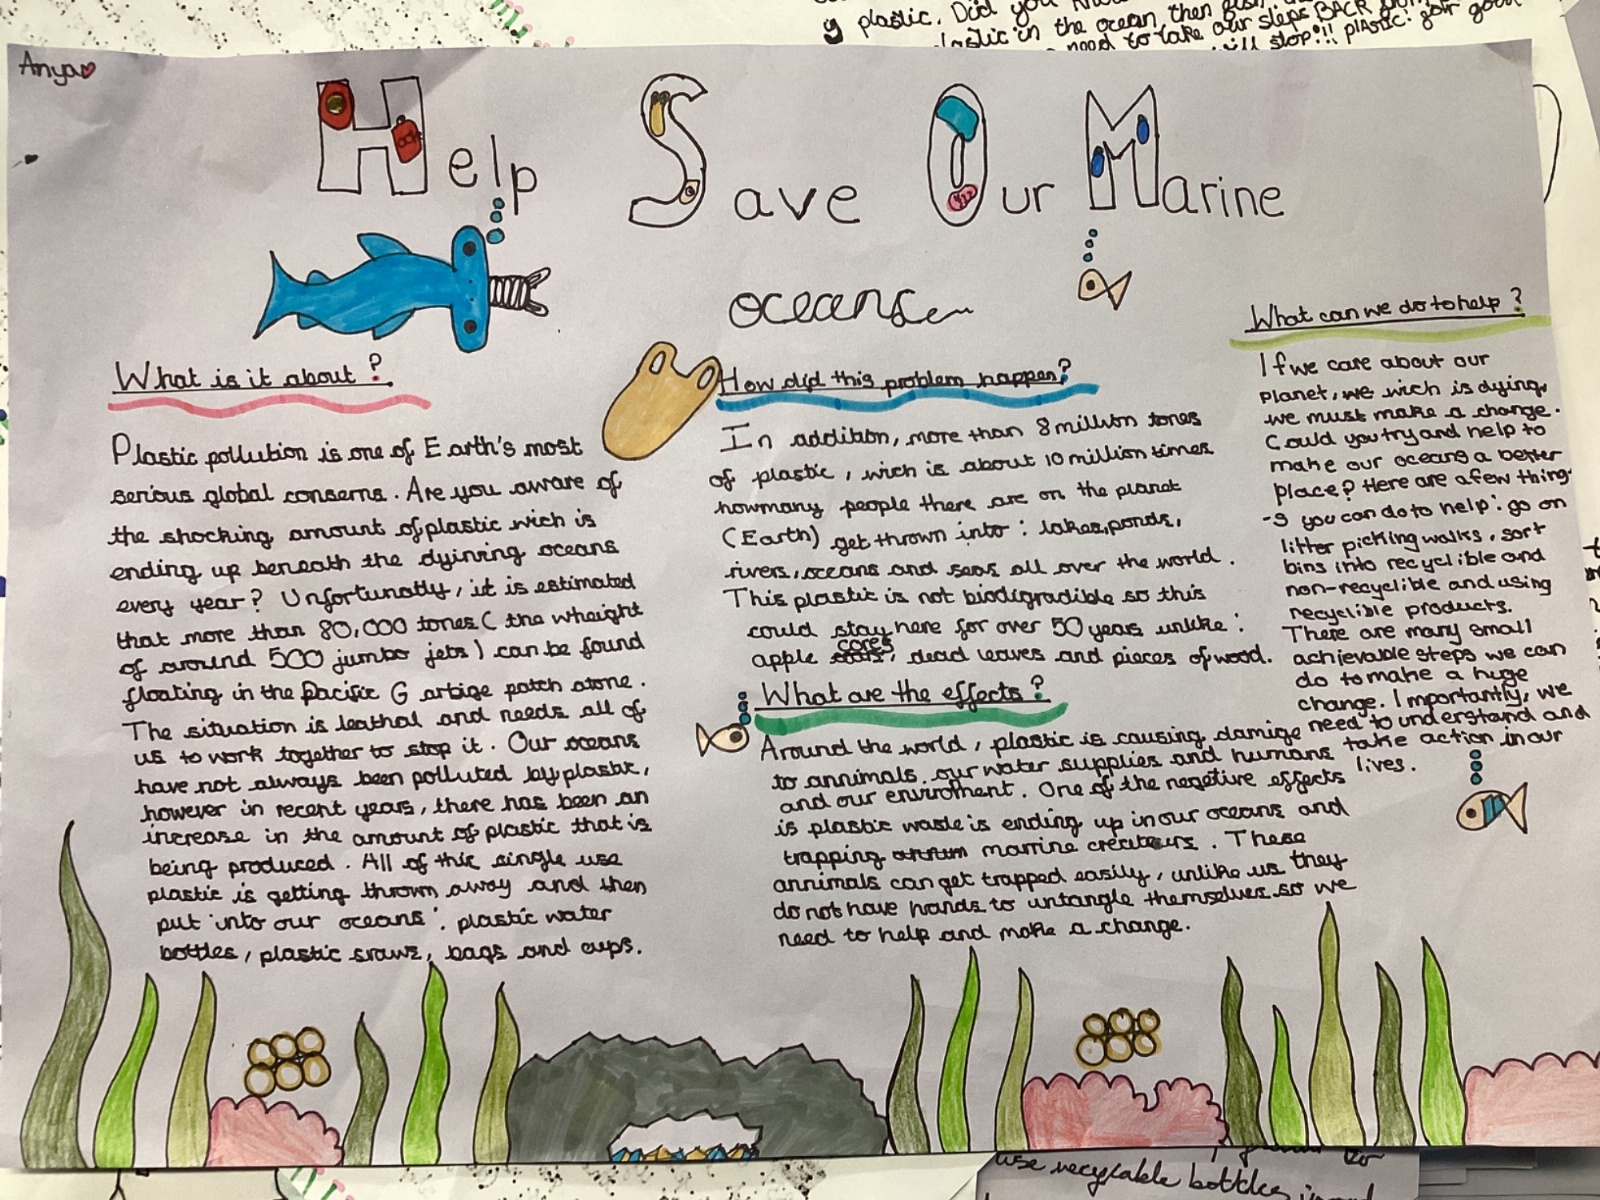 Anya
Help Save Our Marine
oceans
What is it about?
Plastic pollution is one of Earth's most
serious global conserns. Are you aware of
the shocking amount of plastic wich is
ending up beneath the dyining oceans
every year? Unfortunatly, it is estimated
that more than 80,000 tones ( the wheight
of around 500 jumbo jets ) can be found
floating in the Pacific Garbige patch alone.
The situation is leathal and needs all of
us to work together to stop it. Our oceans
have not always been polluted by plastic,
however in recent years, there has been an
increase in the amount of plastic that is
being produced. All of this single use
plastic is getting thrown away and then
put into our oceans: plastic water
bottles, plastic sraws, bags and cups.
How did this problem happen?
In addition, more than 8 million tones
of plastic, wich is about 10 million times
howmany people there are on the planet
(Earth) get thrown into: lakes, ponds,
rivers, oceans and seas all over the world.
This plastic is not biodigradible so this
could stay here for over 50 years unlike:
apple cores, dead leaves and pieces of wood.
What are the effects?
Around the world, plastic is causing damige
to annimals, our water supplies and humans
and our enviroment. One of the negative effects
is plastic waste is ending up in our oceans and
trapping marrine createurs. These
annimals can get trapped easily, unlike us they
do not have hands to untangle themselves so we
need to help and make a change.
What can we do to help?
If we care about our
planet, we wich is dying,
we must make a change.
Could you try and help to
make our oceans a better
place? Here are a few thing-
-s you can do to help: go on
litter picking walks, sort
bins into recyclible and
non-recyclible and using
recyclible products.
There are many small
achievable steps we can
do to make a huge
change. Importantly, we
need to understand and
take action in our
lives.
plastic. Did you
plastic in the ocean, then
need to take our steps BACK
will stop!!! plastic:
use recyclable bottles